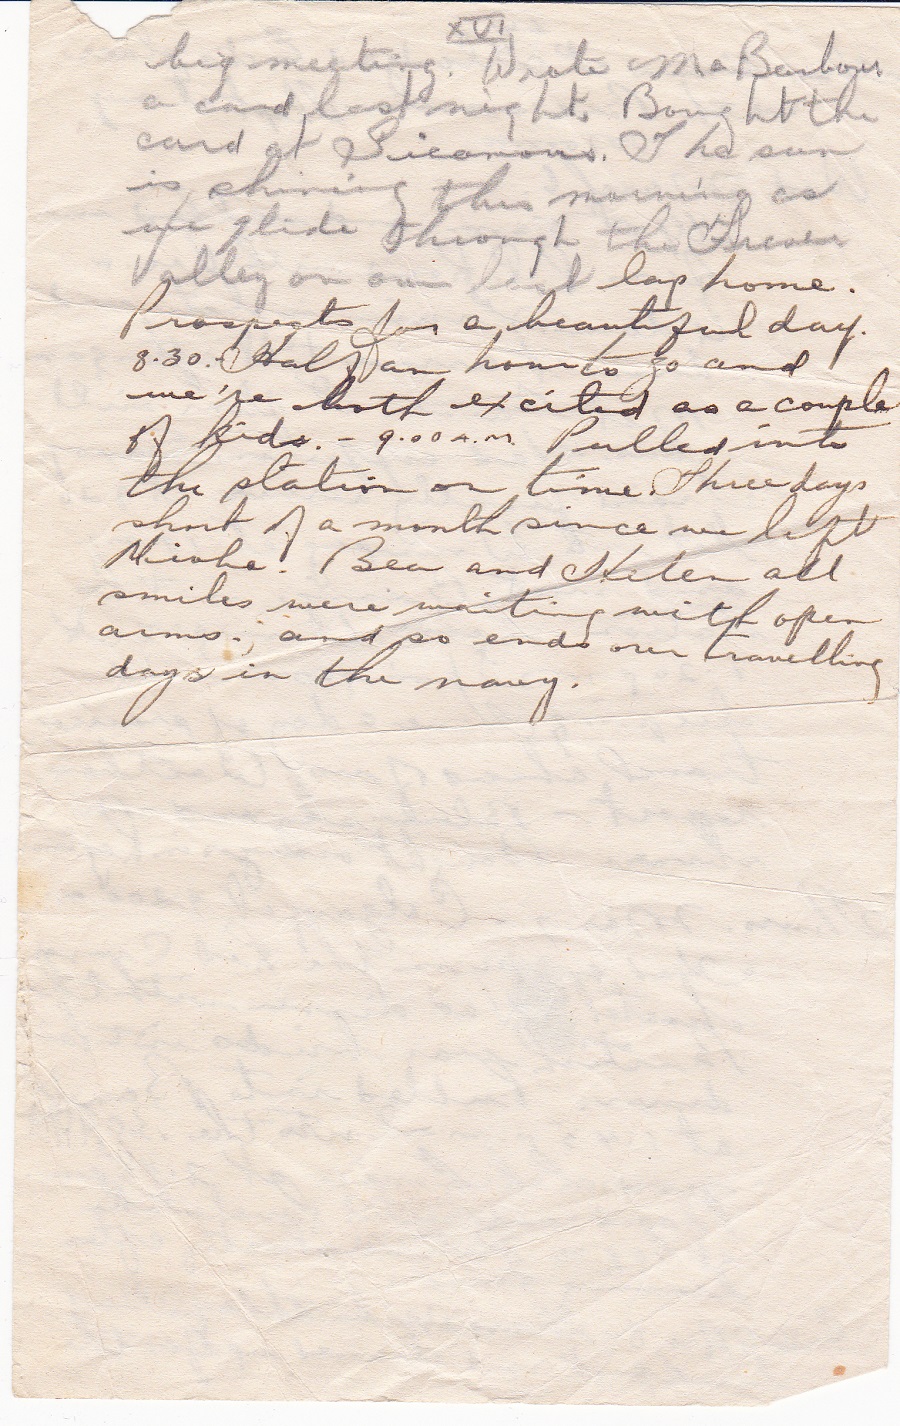 XVI
big meeting. Wrote Ma Barbour
a card last night. Bought the
card at Sicamous. The sun
is shining this morning as
we glide through the Fraser
Valley on our last lap home.
Prospects for a beautiful day.
8.30. Half an hour to go and
we're both excited as a couple
of kids. - 9.00 A.M. Pulled into
the station on time. Three days
short of a month since we left
Niobe. Bea and Helen all
smiles were waiting with open
arms., and so ends our travelling
days in the navy.